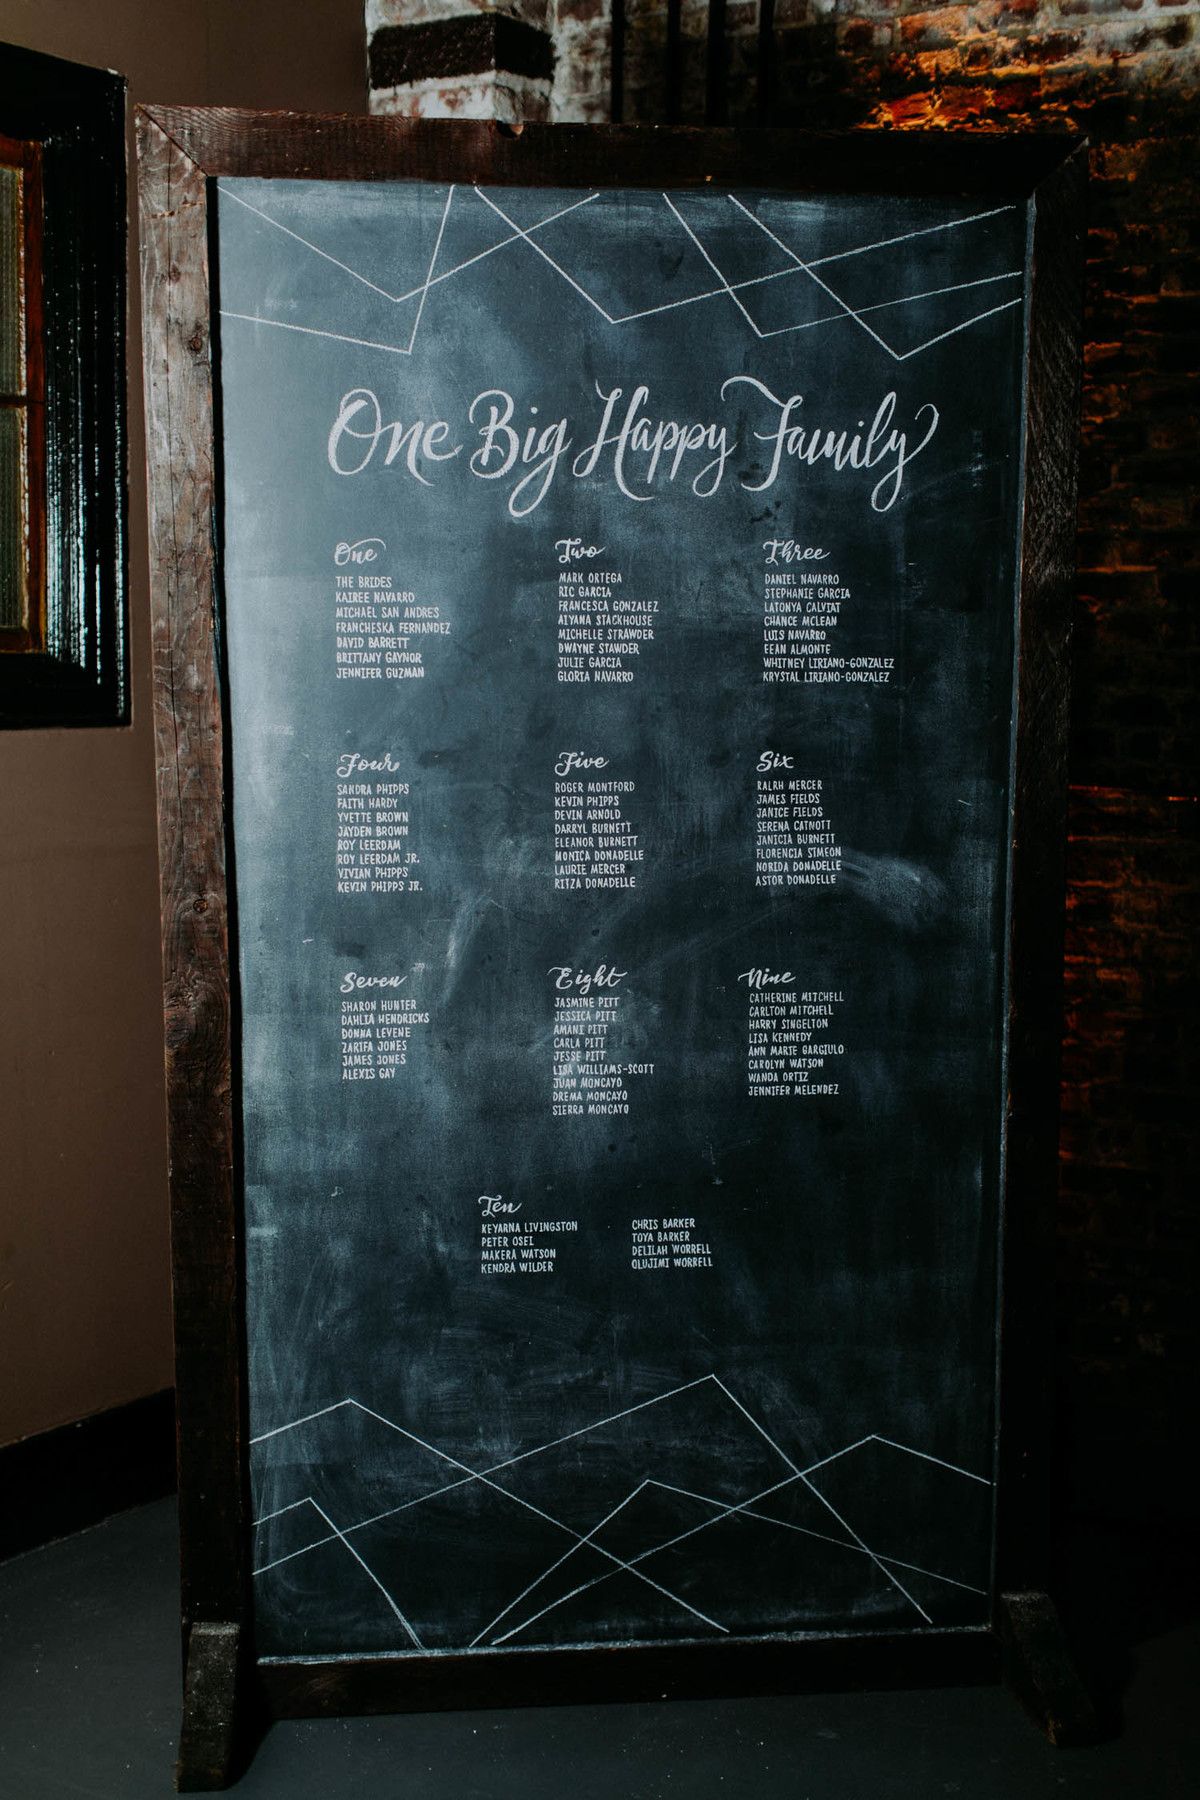 One Big Happy Family
One
THE BRIDES
KAIREE NAVARRO
MICHAEL SAN ANDRES
FRANCHESKA FERNANDEZ
DAVID BARRETT
BRITTANY GAYNOR
JENNIFER GUZMAN
Two
MARK ORTEGA
RIC GARCIA
FRANCESCA GONZALEZ
AIYANA STACKHOUSE
MICHELLE STRAWDER
DWAYNE STAWDER
JULIE GARCIA
GLORIA NAVARRO
Three
DANIEL NAVARRO
STEPHANIE GARCIA
LATONYA CALVIAT
CHANCE MCLEAN
LUIS NAVARRO
EEAN ALMONTE
WHITNEY LIRIANO-GONZALEZ
KRYSTAL LIRIANO-GONZALEZ
Four
SANDRA PHIPPS
FAITH HARDY
YVETTE BROWN
JAYDEN BROWN
ROY LEERDAM
ROY LEERDAM JR.
VIVIAN PHIPPS
KEVIN PHIPPS JR.
Five
ROGER MONTFORD
KEVIN PHIPPS
DEVIN ARNOLD
DARRYL BURNETT
ELEANOR BURNETT
MONICA DONADELLE
LAURIE MERCER
RITZA DONADELLE
Six
RALPH MERCER
JAMES FIELDS
JANICE FIELDS
SERENA CATNOTT
JANICIA BURNETT
FLORENCIA SIMEON
NORIDA DONADELLE
ASTOR DONADELLE
Seven
SHARON HUNTER
DAHLIA HENDRICKS
DONNA LEVENE
ZARIFA JONES
JAMES JONES
ALEXIS GAY
Eight
JASMINE PITT
JESSICA PITT
AMANI PITT
CARLA PITT
JESSE PITT
LISA WILLIAMS-SCOTT
JUAN MONCAYO
DREMA MONCAYO
SIERRA MONCAYO
Nine
CATHERINE MITCHELL
CARLTON MITCHELL
HARRY SINGELTON
LISA KENNEDY
ANN MARIE GARGIULO
CAROLYN WATSON
WANDA ORTIZ
JENNIFER MELENDEZ
Ten
KEYARNA LIVINGSTON
PETER OSEI
MAKERA WATSON
KENDRA WILDER
CHRIS BARKER
TOYA BARKER
DELILAH WORRELL
OLUJIMI WORRELL